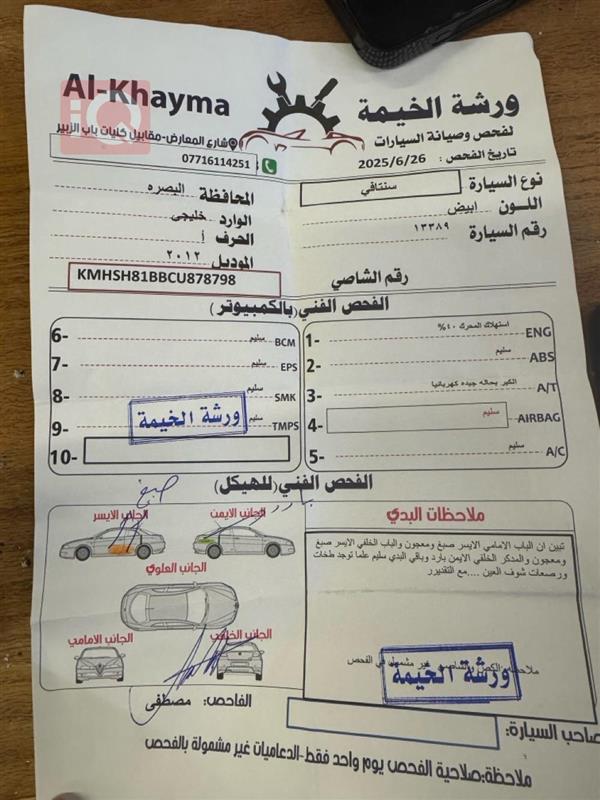 Al-Khayma
ورشة الخيمة
لفحص وصيانة السيارات
شارع المعارض-مقابيل كليات باب الزبير
07716114251
تاريخ الفحص : 2025/6/26
نوع السيارة سنتافي
المحافظة البصره
اللون ابيض
الوارد خليجي
رقم السيارة ١٣٣٨٩
الحرف أ
الموديل ٢٠١٢
رقم الشاصي KMHSH81BBCU878798
الفحص الفني (بالكمبيوتر)
1- استهلاك المحرك ٤٠% ENG
2- سليم ABS
3- الكير بحاله جيده كهربائيا A/T
4- سليم AIRBAG
5- سليم A/C
6- سليم BCM
7- سليم EPS
8- سليم SMK
9- سليم TMPS
10-
ورشة الخيمة
الفحص الفني (للهيكل)
صبغ
بارد
الجانب الايسر
الجانب الايمن
الجانب العلوي
الجانب الامامي
الجانب الخلفي
ملاحظات البدي
تبين ان الباب الامامي الايسر صبغ ومعجون والباب الخلفي الايسر صبغ
ومعجون والمدكر الخلفي الايمن بارد وباقي البدي سليم علما توجد طخات
ورصعات شوف العين ....مع التقديرر
غير مشمول في الفحص
ورشة الخيمة
الفاحص: مصطفى
صاحب السيارة:
ملاحظة:صلاحية الفحص يوم واحد فقط-الدعاميات غير مشمولة بالفحص